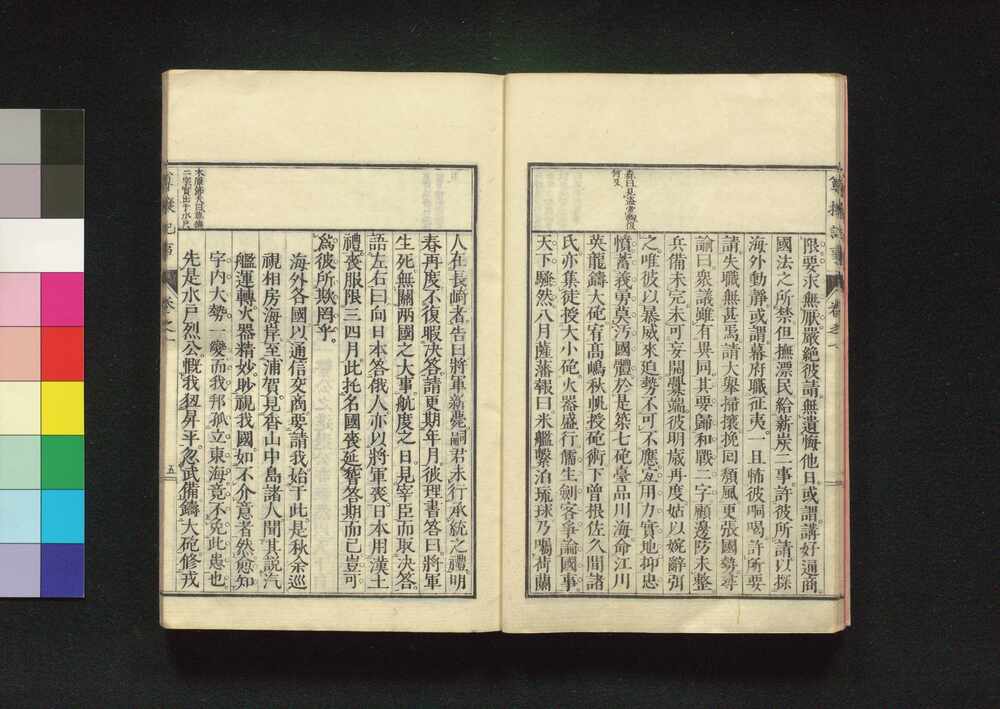 限要求無厭嚴絕彼請無遺悔他日或謂講好通商
國法之所禁但撫漂民給薪炭二事許彼所請以探
海外動靜或謂幕府職征夷一旦怖彼恫喝許所要
請失職無甚焉請大舉掃攘挽回頹風更張國勢尋
諭曰衆議雖有異同其要歸和戰二字顧邊防未整
兵備未完未可妄開釁端彼明歲再度姑以婉辭弭
之唯彼以暴威來迫勢不可不應宜用力實地抑忠
憤蓄義勇莫汚國體於是築七砲臺品川海命江川
英龍鑄大砲宥高嶋秋帆授砲術下曾根佐久間諸
氏亦集徒授大小砲火器盛行儒生劍客爭論國事
天下騷然八月薩藩報曰米艦繫泊琉球乃囑荷蘭
人在長崎者告曰將軍新薨嗣君未行承統之禮明
春再度不復暇決答請更期年月彼理書答曰將軍
生死無關兩國之大事航度之日見宰臣而取決答
語左右曰向日本答俄人亦以將軍喪日本用漢土
禮喪服限三四月此托名國喪延朞答期而已豈可
爲彼所欺罔乎
海外各國以通信交商要請我始于此是秋余巡
視相房海岸至浦賀見香山中島諸人聞其說汽
艦運轉火器精妙眇視我國如不介意者然愈知
宇内大勢一變而我邦孤立東海竟不免此患也
先是水戸烈公慨我狃昇平忽武備鑄大砲修戎
卷之一
五